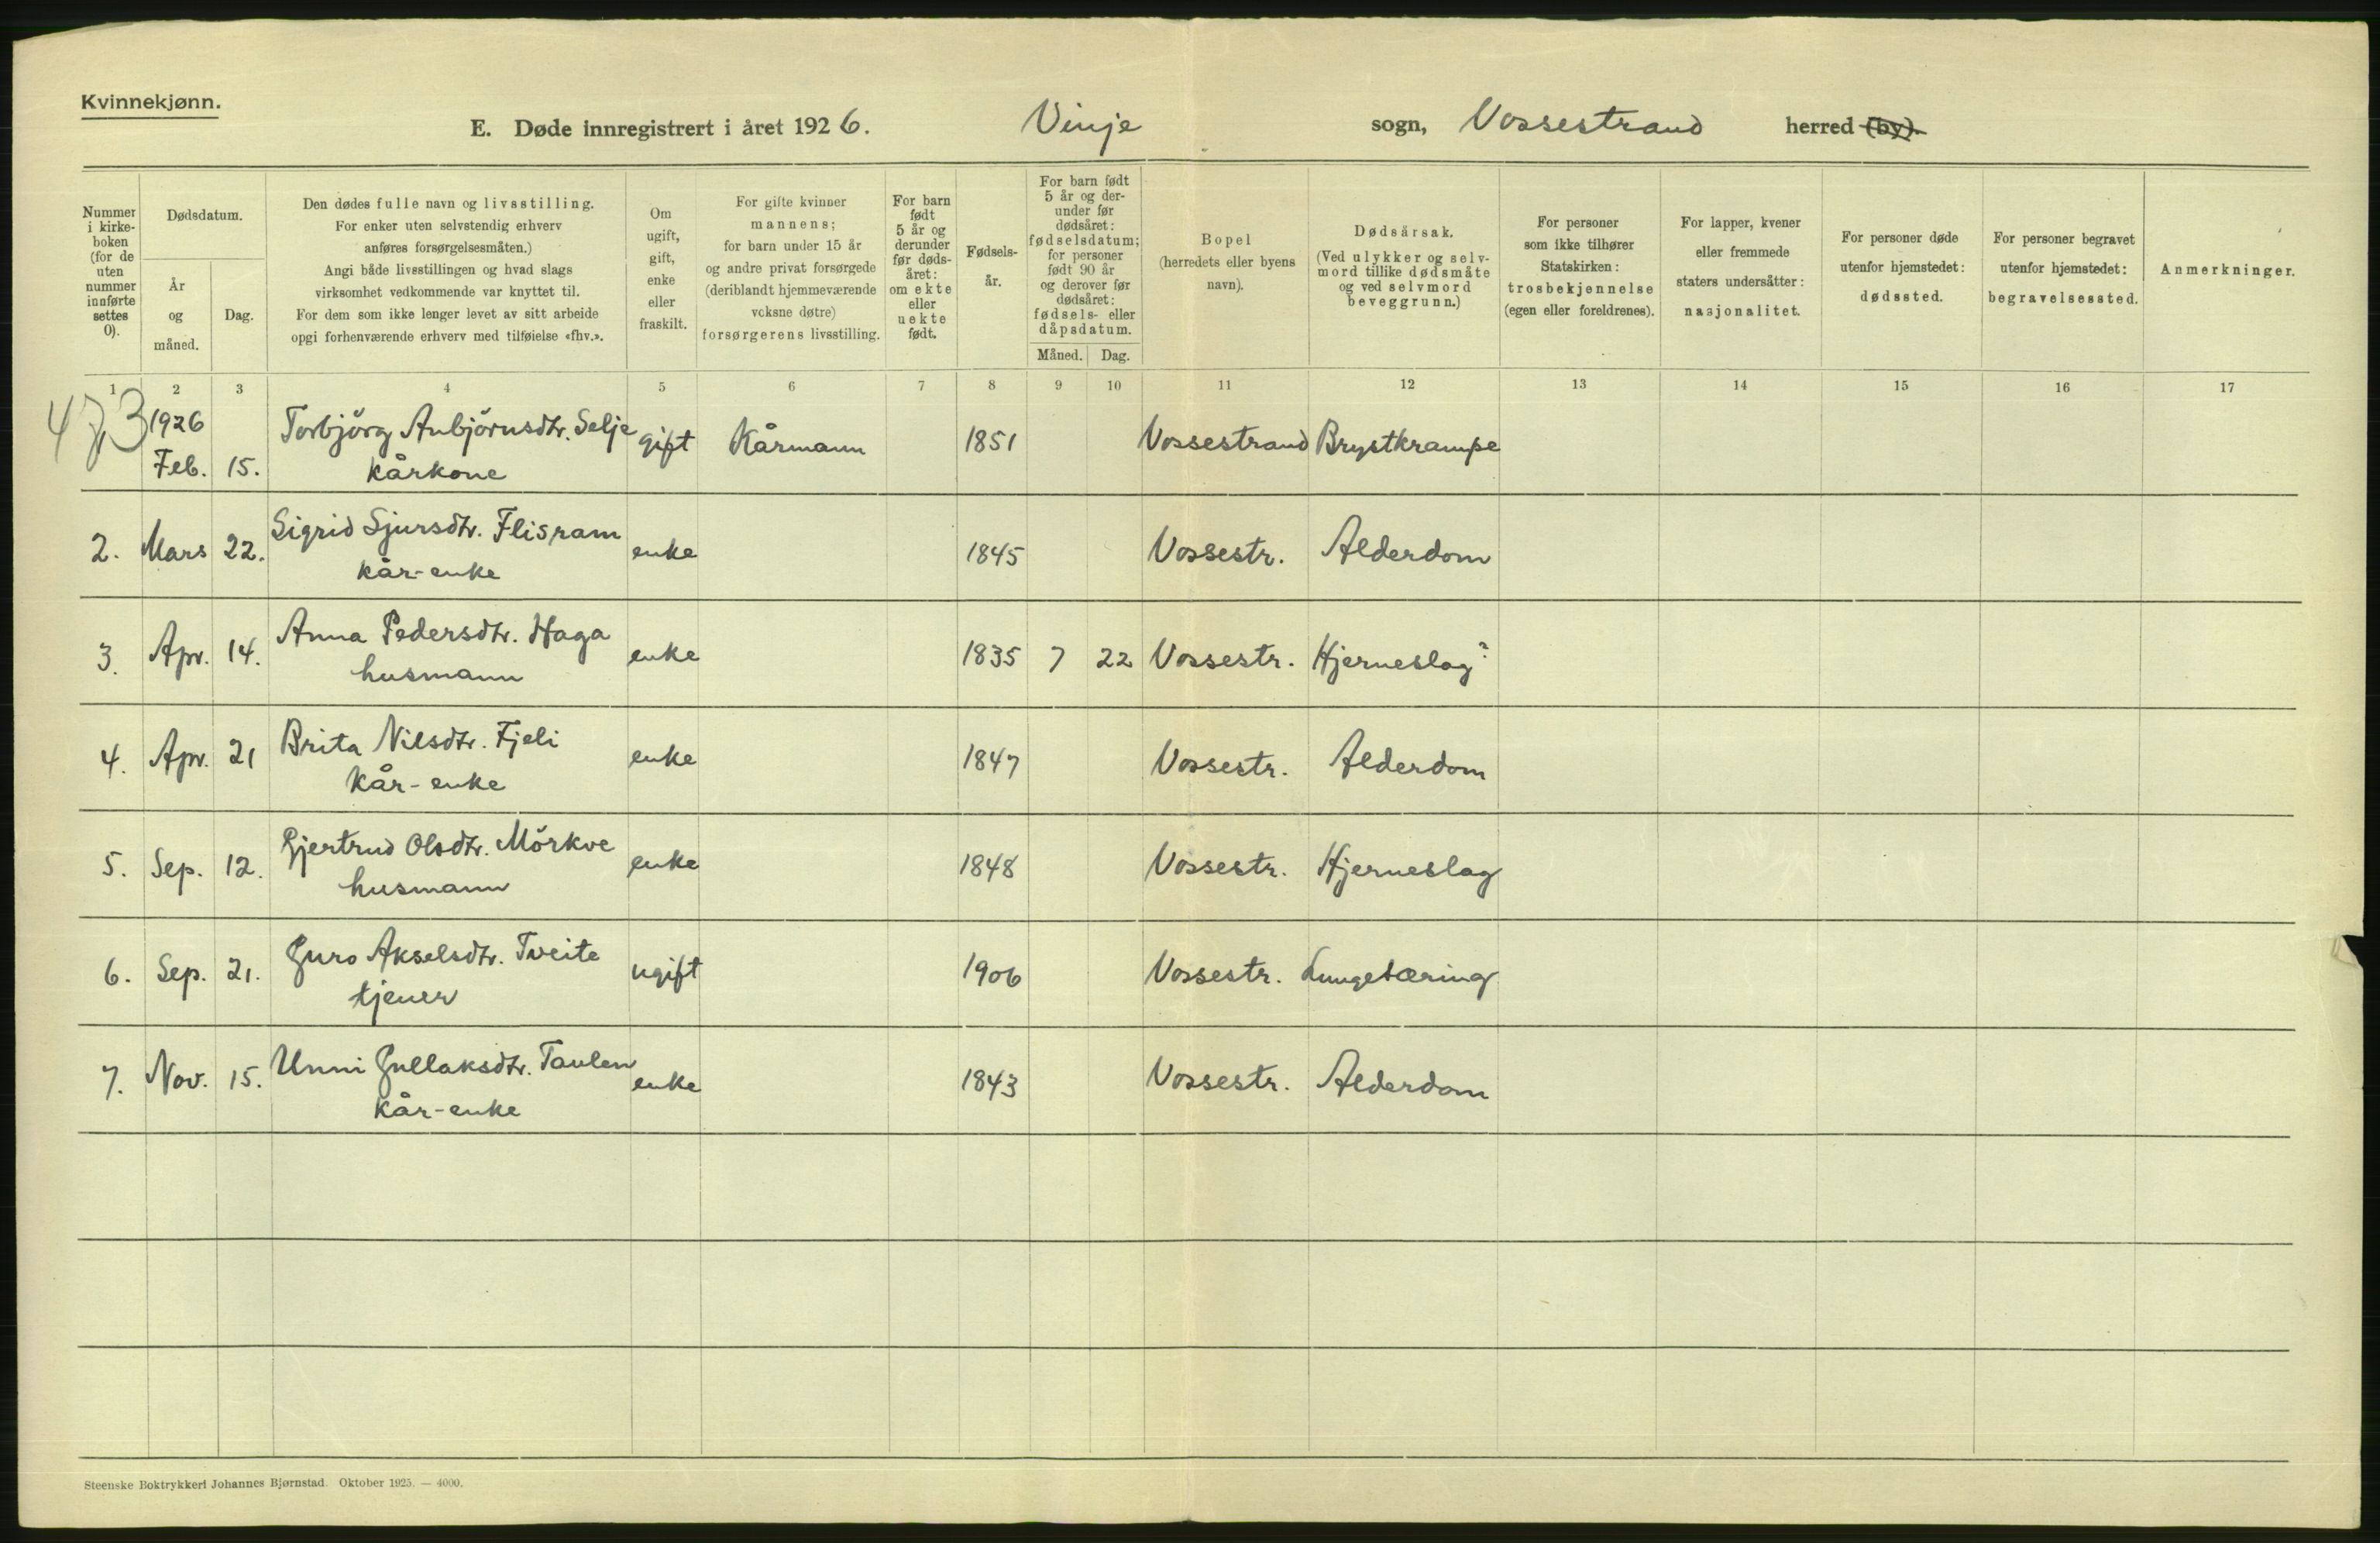 Kvinnekjønn.
E. Døde innregistrert i året 1926. Vinje sogn, Vossestrand herred (by).
Nummer i kirke-boken (for de uten nummer innførte settes 0).
Dødsdatum.
År og måned.
Dag.
Den dødes fulle navn og livsstilling.
For enker uten selvstendig erhverv
anføres forsørgelsesmåten.)
Angi både livsstillingen og hvad slags
virksomhet vedkommende var knyttet til.
For dem som ikke lenger levet av sitt arbeide
opgi forhenværende erhverv med tilføielse «fhv.».
Om ugift, gift, enke eller fraskilt.
For gifte kvinner
mannens;
for barn under 15 år
og andre privat forsørgede
(deriblandt hjemmeværende
voksne døtre)
forsørgerens livsstilling.
For barn født 5 år og derunder før døds-året: om ekte eller uekte født.
Fødsels-år.
For barn født 5 år og der-under før dødsåret: fødselsdatum; for personer født 90 år og derover før dødsåret: fødsels- eller dåpsdatum.
Måned. Dag.
Bopel
(herredets eller byens
navn).
Dødsårsak.
(Ved ulykker og selv-
mord tillike dødsmåte
og ved selvmord
beveggrunn.)
For personer
som ikke tilhører
Statskirken:
trosbekjennelse
(egen eller foreldrenes).
For lapper, kvener
eller fremmede
staters undersåtter:
nasjonalitet.
For personer døde
utenfor hjemstedet:
dødssted.
For personer begravet
utenfor hjemstedet:
begravelsessted.
Anmerkninger.
1 2 3 4 5 6 7 8 9 10 11 12 13 14 15 16 17
1926 Torbjörg Anbjörnsdtr. Selje gift Kårmann 1851 Vossestrand Brystkrampe
Feb. 15. Kårkone
Sigrid Sjursdtr. Flisram
2. Mars 22. enke 1845 Vossestr. Alderdom
kår-enke
Anna Pedersdtr. Haga
3. Apr. 14. enke 1835 7 22 Vossestr. Hjerneslag?
husmann
Brita Nilsdtr. Fjeli
4. Apr. 21 enke 1847 Vossestr. Alderdom
Kår-enke
Gjertrud Olsdtr. Mörkve
5. Sep. 12. enke 1848 Vossestr. Hjerneslag
husmann
Guro Akselsdtr. Tveite
6. Sep. 21. ugift 1906 Vossestr. Lungetæring
tjener
Unni Gullaksdtr. Taulen
7. Nov. 15. enke 1843 Vossestr. Alderdom
Kår-enke
Steenske Boktrykkeri Johannes Bjørnstad. Oktober 1925. — 4000.